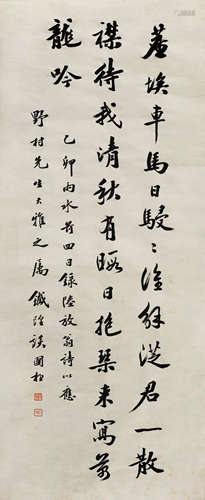 黃埃車馬日駸〻誰解從君一散
襟待我清秋有暇日抱琴來寫萬
龍吟
乙卯雨水前四日錄陸放翁詩以應
野村先生大雅之屬 鐵隍談國桓